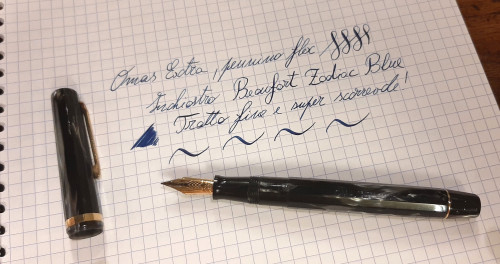 Omas Extra, pennino flex
Inchiostro Beaufort Zodiac Blue
Tratto fine e super scorrevole!